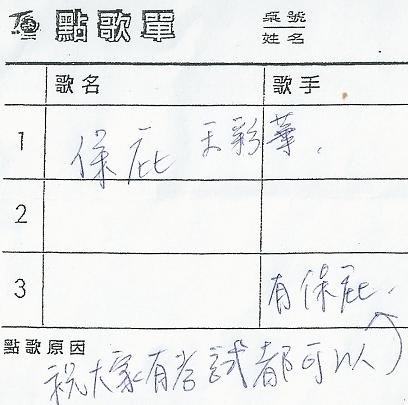 點歌單 桌號
姓名
歌名 歌手
1 保庇 王彩華.
2
3 有保庇.
點歌原因 祝大家有考試都可以